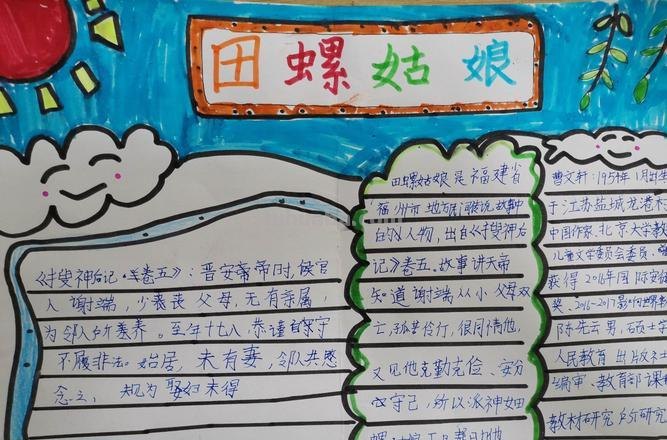 田螺姑娘
《搜神后记·卷五》:晋安帝时,候官
人谢端,少丧父母,无有亲属,
为邻人所养。至年十七八,恭谨自守
不履非法。始居,未有妻,邻人共愍
念之,规为娶妇未得
田螺姑娘是福建省
福州市地方民间传说故事中
的人物,出自《搜神后
记》卷五。故事讲天帝
知道谢端从小父母双
亡,孤苦伶仃,很同情他,
又见他克勤克俭、安分
守己,所以派神女田
曹文轩:1954年1月出生
于江苏盐城龙港村
中国作家,北京大学教
儿童文学委员会委员,
获得2016年国际安徒
奖、2016-2017影响世界
陈先云男,硕士
人民教育出版社
编审、教育部课程
教材研究所研究